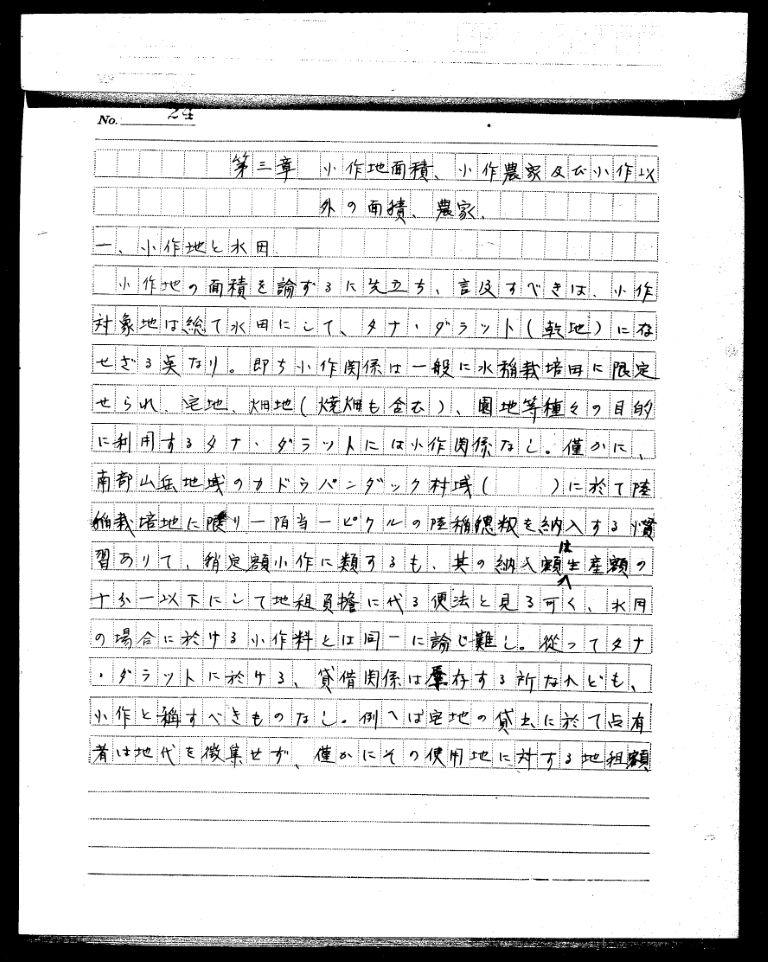 No. 24
第三章 小作地面積、小作農家及び小作以
外の面積、農家、
一、小作地と水田
小作地の面積を論ずるに先立ち、言及すべきは、小作
対象地は総て水田にして、タナ・ダラット(乾地)に存
せざる点なり。即ち小作関係は一般に水稲栽培田に限定
せられ、宅地、畑地(焼畑も含む)、園地等種々の目的
に利用するタナ・ダラットには小作関係なし。僅かに、
南部山岳地域のカドラパンダック村域( )に於て陸
稲栽培地に限り一陌当一ピクルの陸稲穂籾を納入する慣
習ありて、稍定額小作に類するも、其の納入額は生産額の
十分一以下にして地租負擔に代る便法と見る可く、水田
の場合に於ける小作料とは同一に論じ難し。従ってタナ
・ダラットに於ける、貸借関係は存する所なれども、
小作と稱すべきものなし。例へば宅地の貸出に於て占有
者は地代を徴集せず、僅かにその使用地に対する地租額